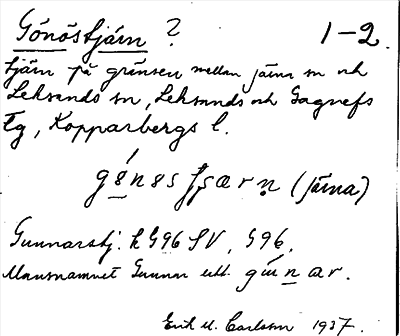 Gönöstjärn ? 1-2.
tjärn på gränsen mellan Järna sn och
Leksands sn, Leksands och Gagnefs
tg, Kopparbergs l.
(Järna)
Gunnarstj. k G96 SV, S96.
Mansnamnet Gunnar utt.
Erik M. Carlsson 1937.